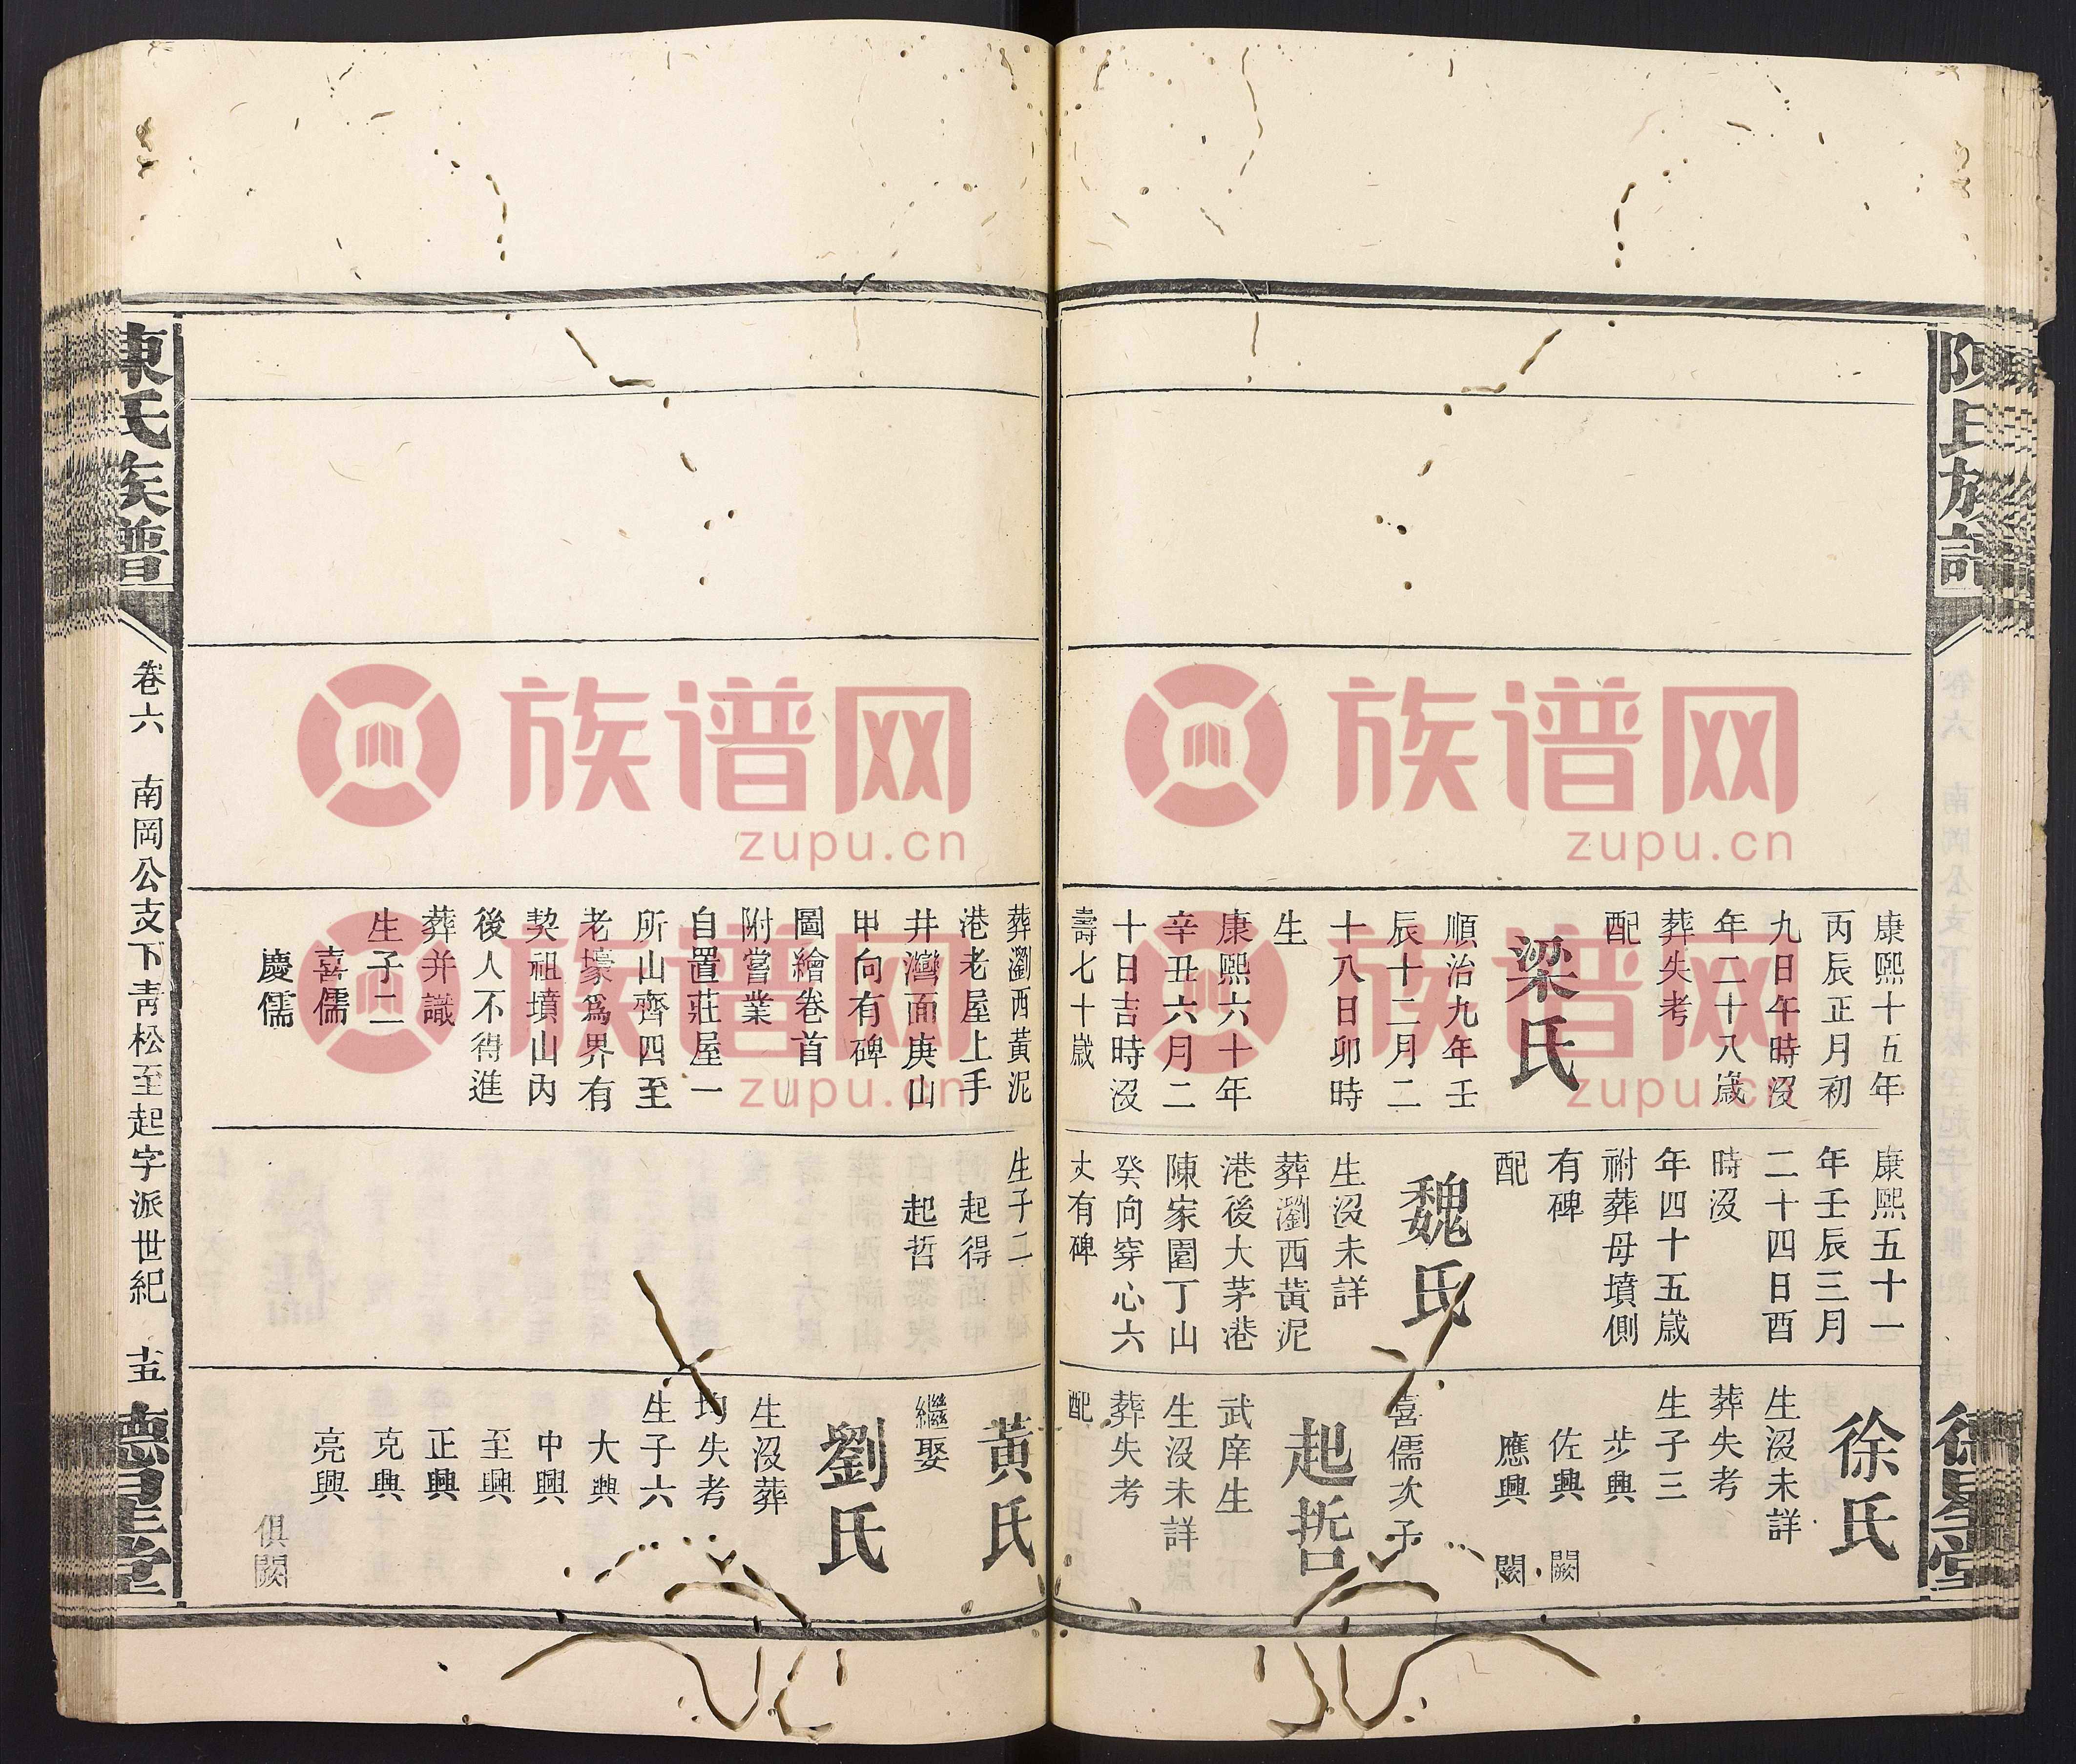 陳氏族譜
康熙十五年
丙辰正月初
九日午時沒
年二十八歲
葬失考
配
梁氏
順治九年壬
辰十二月二
十八日卯時
生
康熙六十年
辛丑六月二
十日吉時沒
壽七十歲
康熙五十一
年壬辰三月
二十四日酉
時沒
年四十五歲
祔葬母墳側
有碑
配
魏氏
生沒未詳
葬瀏西黃泥
港後大茅港
陳家園丁山
癸向穿心六
丈有碑
徐氏
生沒未詳
葬失考
生子三
步興
佐興 闕
應興 闕
喜儒次子
起哲
武庠生
生沒未詳
葬失考
配
葬瀏西黃泥
港老屋上手
井灣面庚山
甲向有碑
圖繪卷首
附嘗業
自置莊屋一
所山齊四至
老壕為界有
契祖墳山內
後人不得進
葬并識
生子二
喜儒
慶儒
生子二
起得
起哲
黃氏
繼娶
劉氏
生沒葬
均失考
生子六
大興
中興
至興
正興
克興
亮興
俱闕
陳氏族譜
卷六 南岡公支下青松至起字派世紀 十五 德星堂
族谱网
zupu.cn
族谱网
zupu.cn
族谱网
zupu.cn
族谱网
zupu.cn